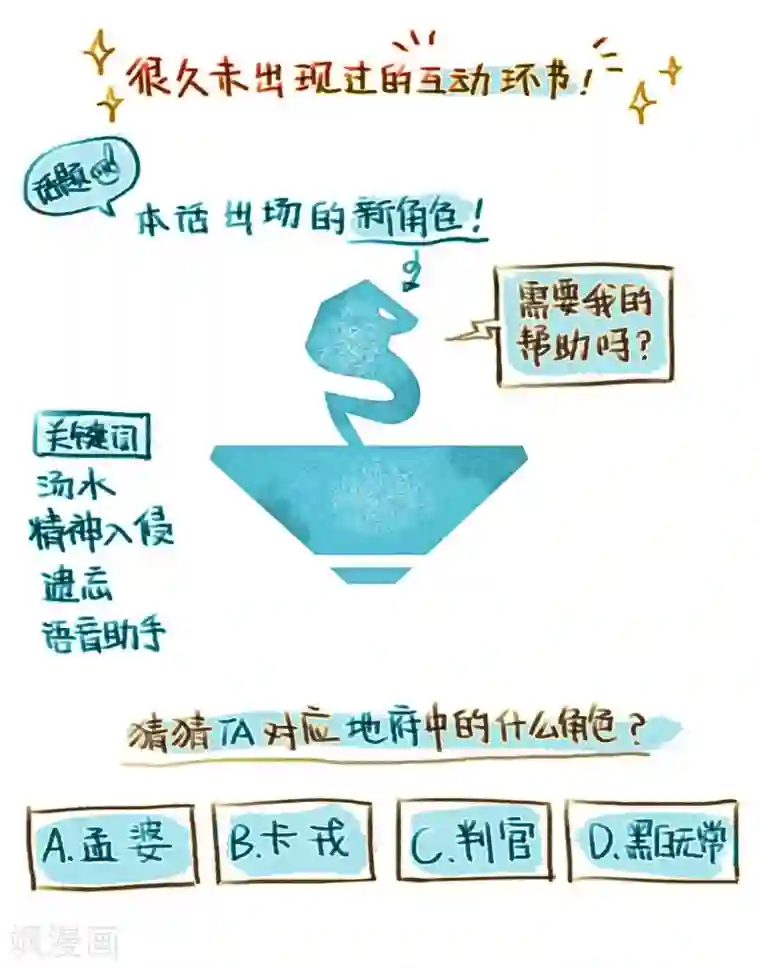 很久未出现过的互动环节!
话题
本话出场的新角色!
需要我的
帮助吗?
关键词
汤水
精神入侵
遗忘
语音助手
猜猜TA对应地府中的什么角色?
A.孟婆
B.卡戎
C.判官
D.黑白无常
飒漫画